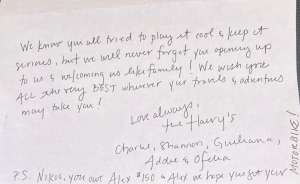 We know you all tried to play it cool & keep it
serious, but we will never forget you opening up
to us & welcoming us like family! We wish you
ALL the very BEST wherever your travels & adventures
may take you!
Love always,
the Harry's
Charlie, Shannon, Giuliana,
Addie & Ofelia
P.S. Nikos, you owe Alex $150 & Alex we hope you got your
MOTORBIKE!